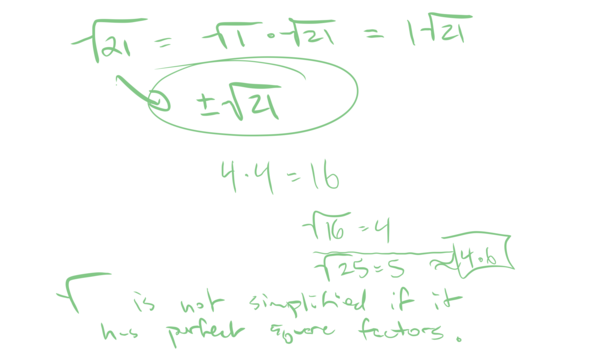 √21 = √1 · √21 = 1√21
± √21
4 · 4 = 16
√16 = 4
√25 = 5 ≈ 4.6
√ is not simplified if it
has perfect square factors.